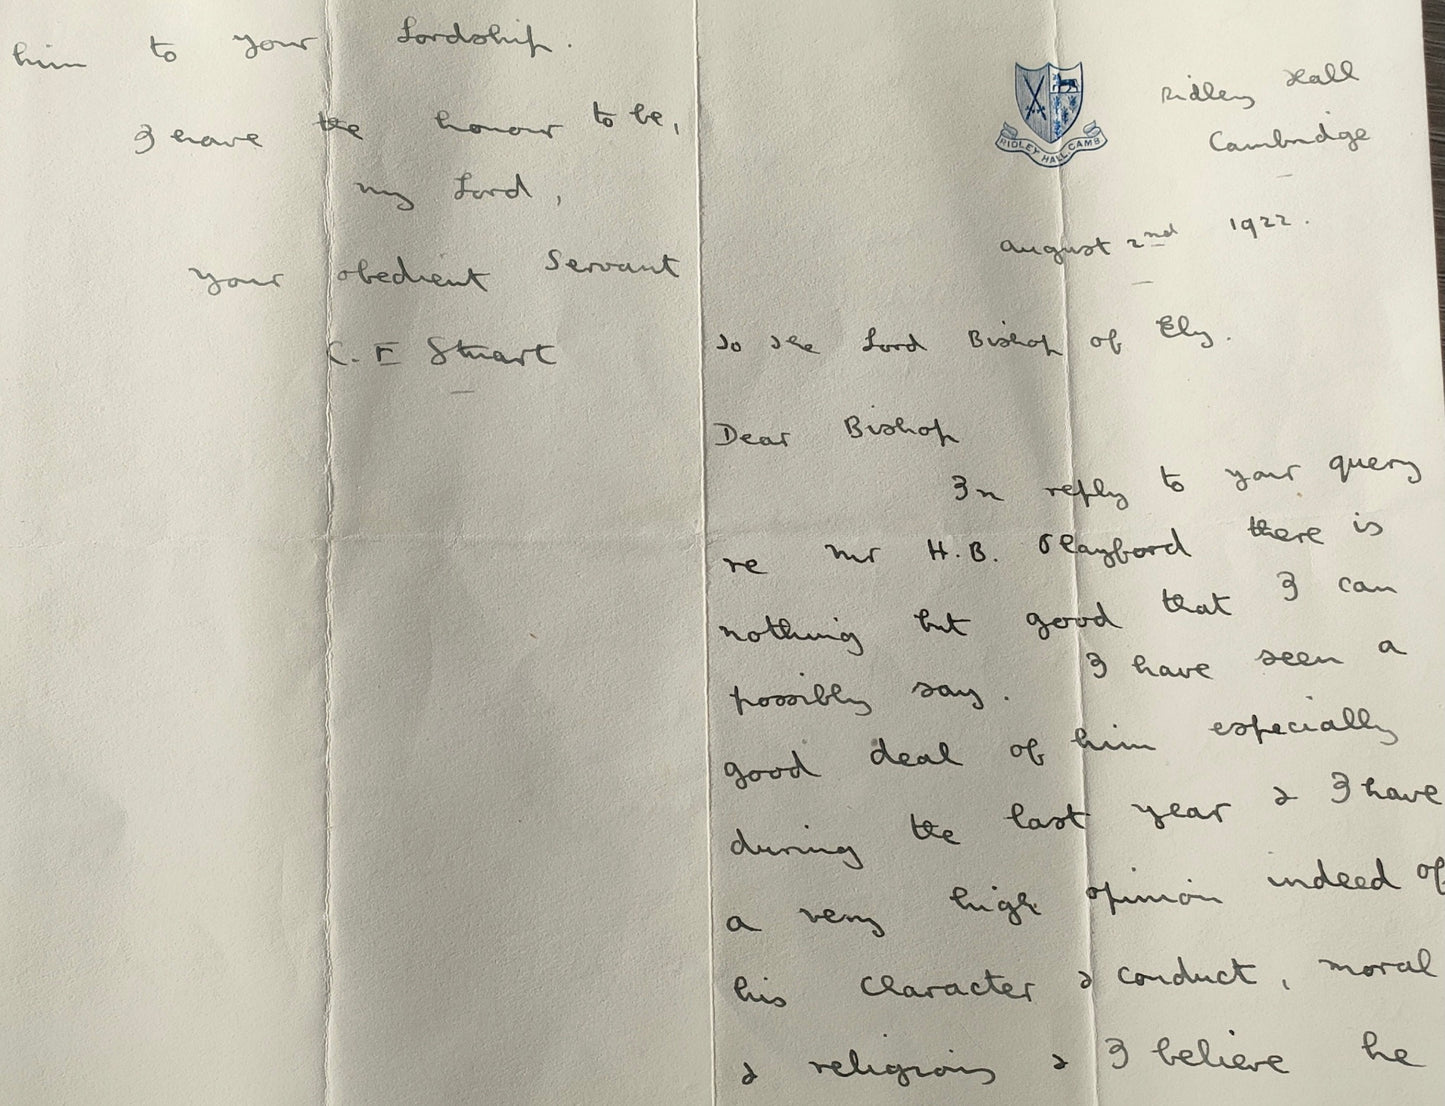 RIDLEY HALL. CAMB
Ridley Hall
Cambridge
August 2nd 1922.
To the Lord Bishop of Ely.
Dear Bishop
In reply to your query
re Mr H.B. there is
nothing but good that I can
possibly say. I have seen a
good deal of him especially
during the last year & I have
a very high opinion indeed of
his character & conduct, moral
& religious & I believe he
him to your Lordship.
I have the honour to be,
my Lord,
Your obedient Servant
C. E Stuart